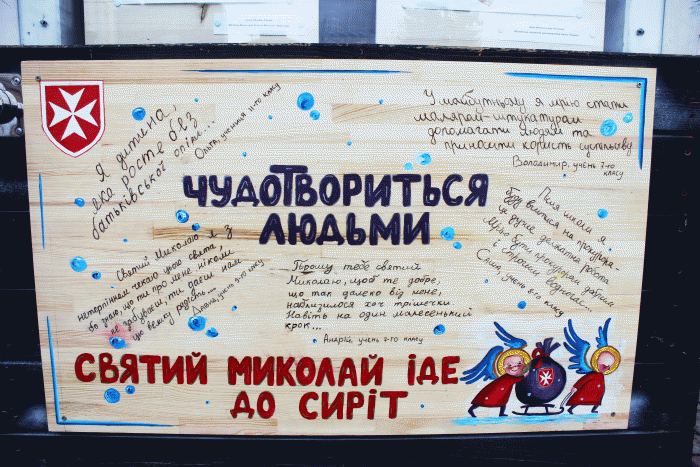 Я дитина,
яка росте без
батьківської опіки...
Ольга, учениця 11-го класу
У майбутньому я мрію стати
маляром-штукатуром
допомагати людям та
приносити користь суспільству
Володимир, учень 7-го
класу
ЧУДО ТВОРИТЬСЯ
ЛЮДЬМИ
Святий Миколаю я з
нетерпінням чекаю цього свята,
бо знаю, що ти про мене ніколи
не забуваєш, ти даєш нам
цю велику радість...
учень 6-го класу
Прошу тебе святий
Миколаю, щоб те добре,
що так далеко від мене,
наблизилося хоч трішечки.
Навіть на один малесенький
крок...
Андрій, учень 7-го класу
Після школи я
буду вчитися на прокурора-
це дуже поважна робота
Мрію бути прокурором добрим
і трошки
Саша, учень 8-го класу
СВЯТИЙ МИКОЛАЙ ІДЕ
ДО СИРІТ